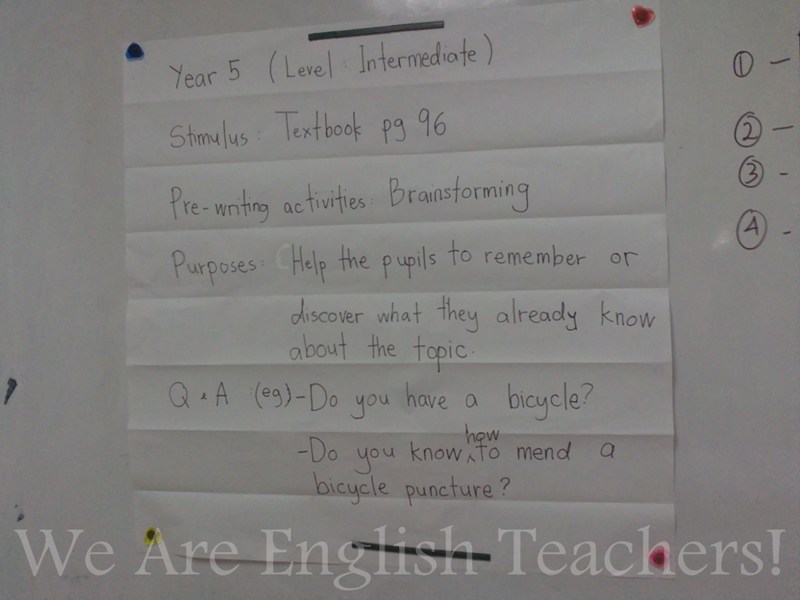 Year 5 (Level : Intermediate)
Stimulus : Textbook pg 96
Pre-writing activities : Brainstorming
Purposes : Help the pupils to remember or
discover what they already know
about the topic.
Q & A (eg) - Do you have a bicycle?
- Do you know how to mend a
bicycle puncture?
① -
② -
③ -
④ -
We Are English Teachers!